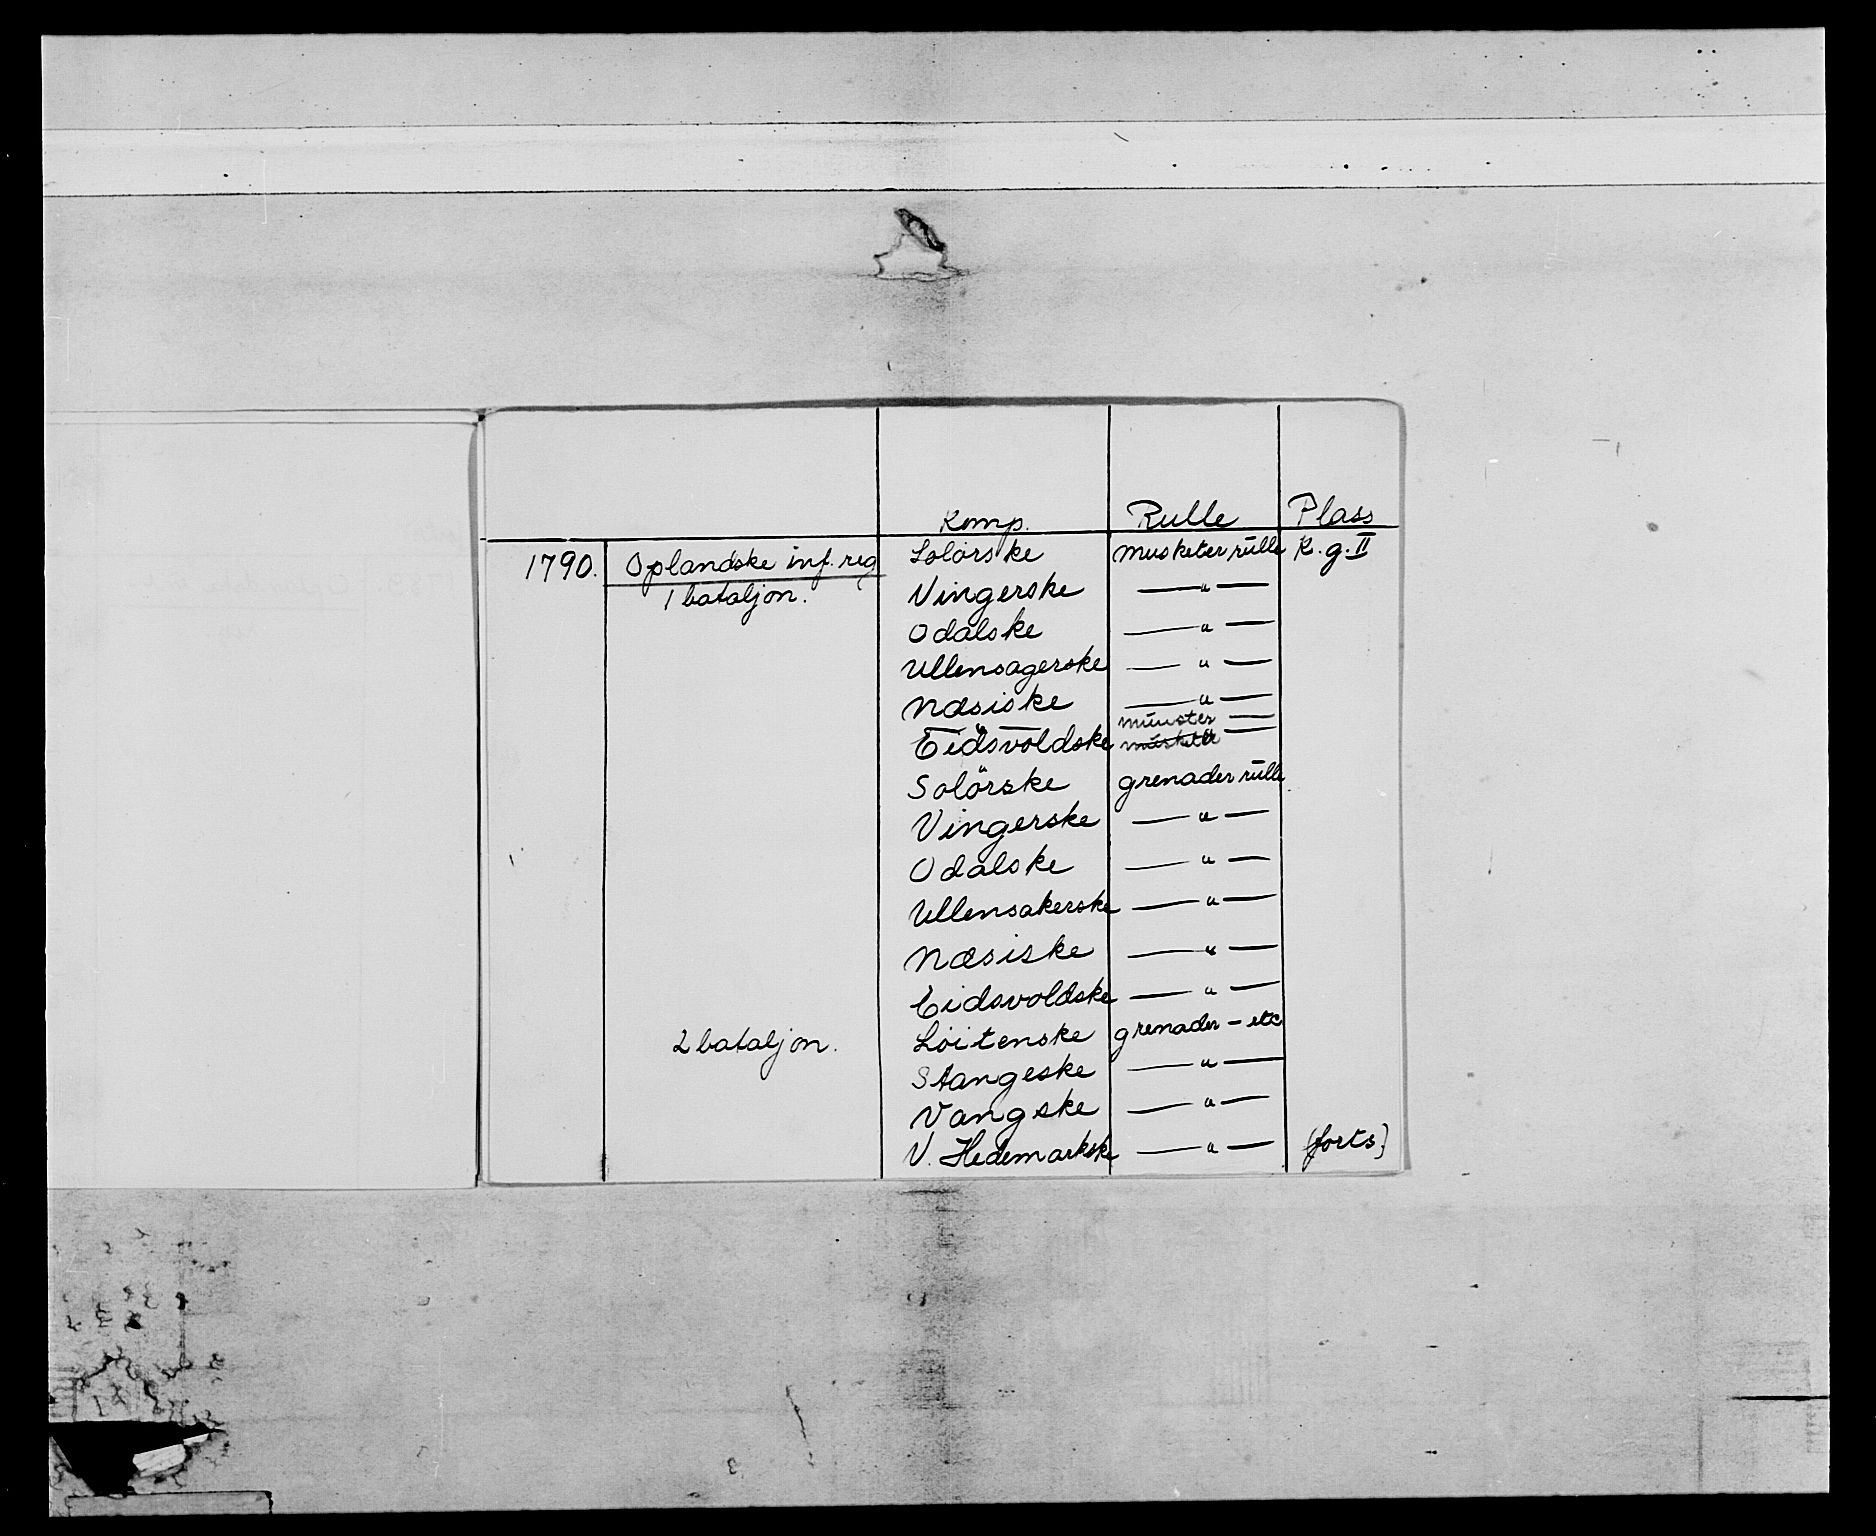 Komp. Rulle Plass
1790. Oplandske inf. reg Solörske musketer rulle K. g. II
1 bataljon. Vingerske — " —
Odalske — " —
Ullensagerske — " —
Næsiske — " —
münster —
Eidsvoldske musketer —
Solörske grenader rulle
Vingerske — " —
Odalske — " —
Ullensakerske — " —
Næsiske — " —
Eidsvoldske — " —
2 bataljon. Löitenske grenader - etc
Stangeske — " —
Vangske — " —
V. Hedemarkske — " — (forts)